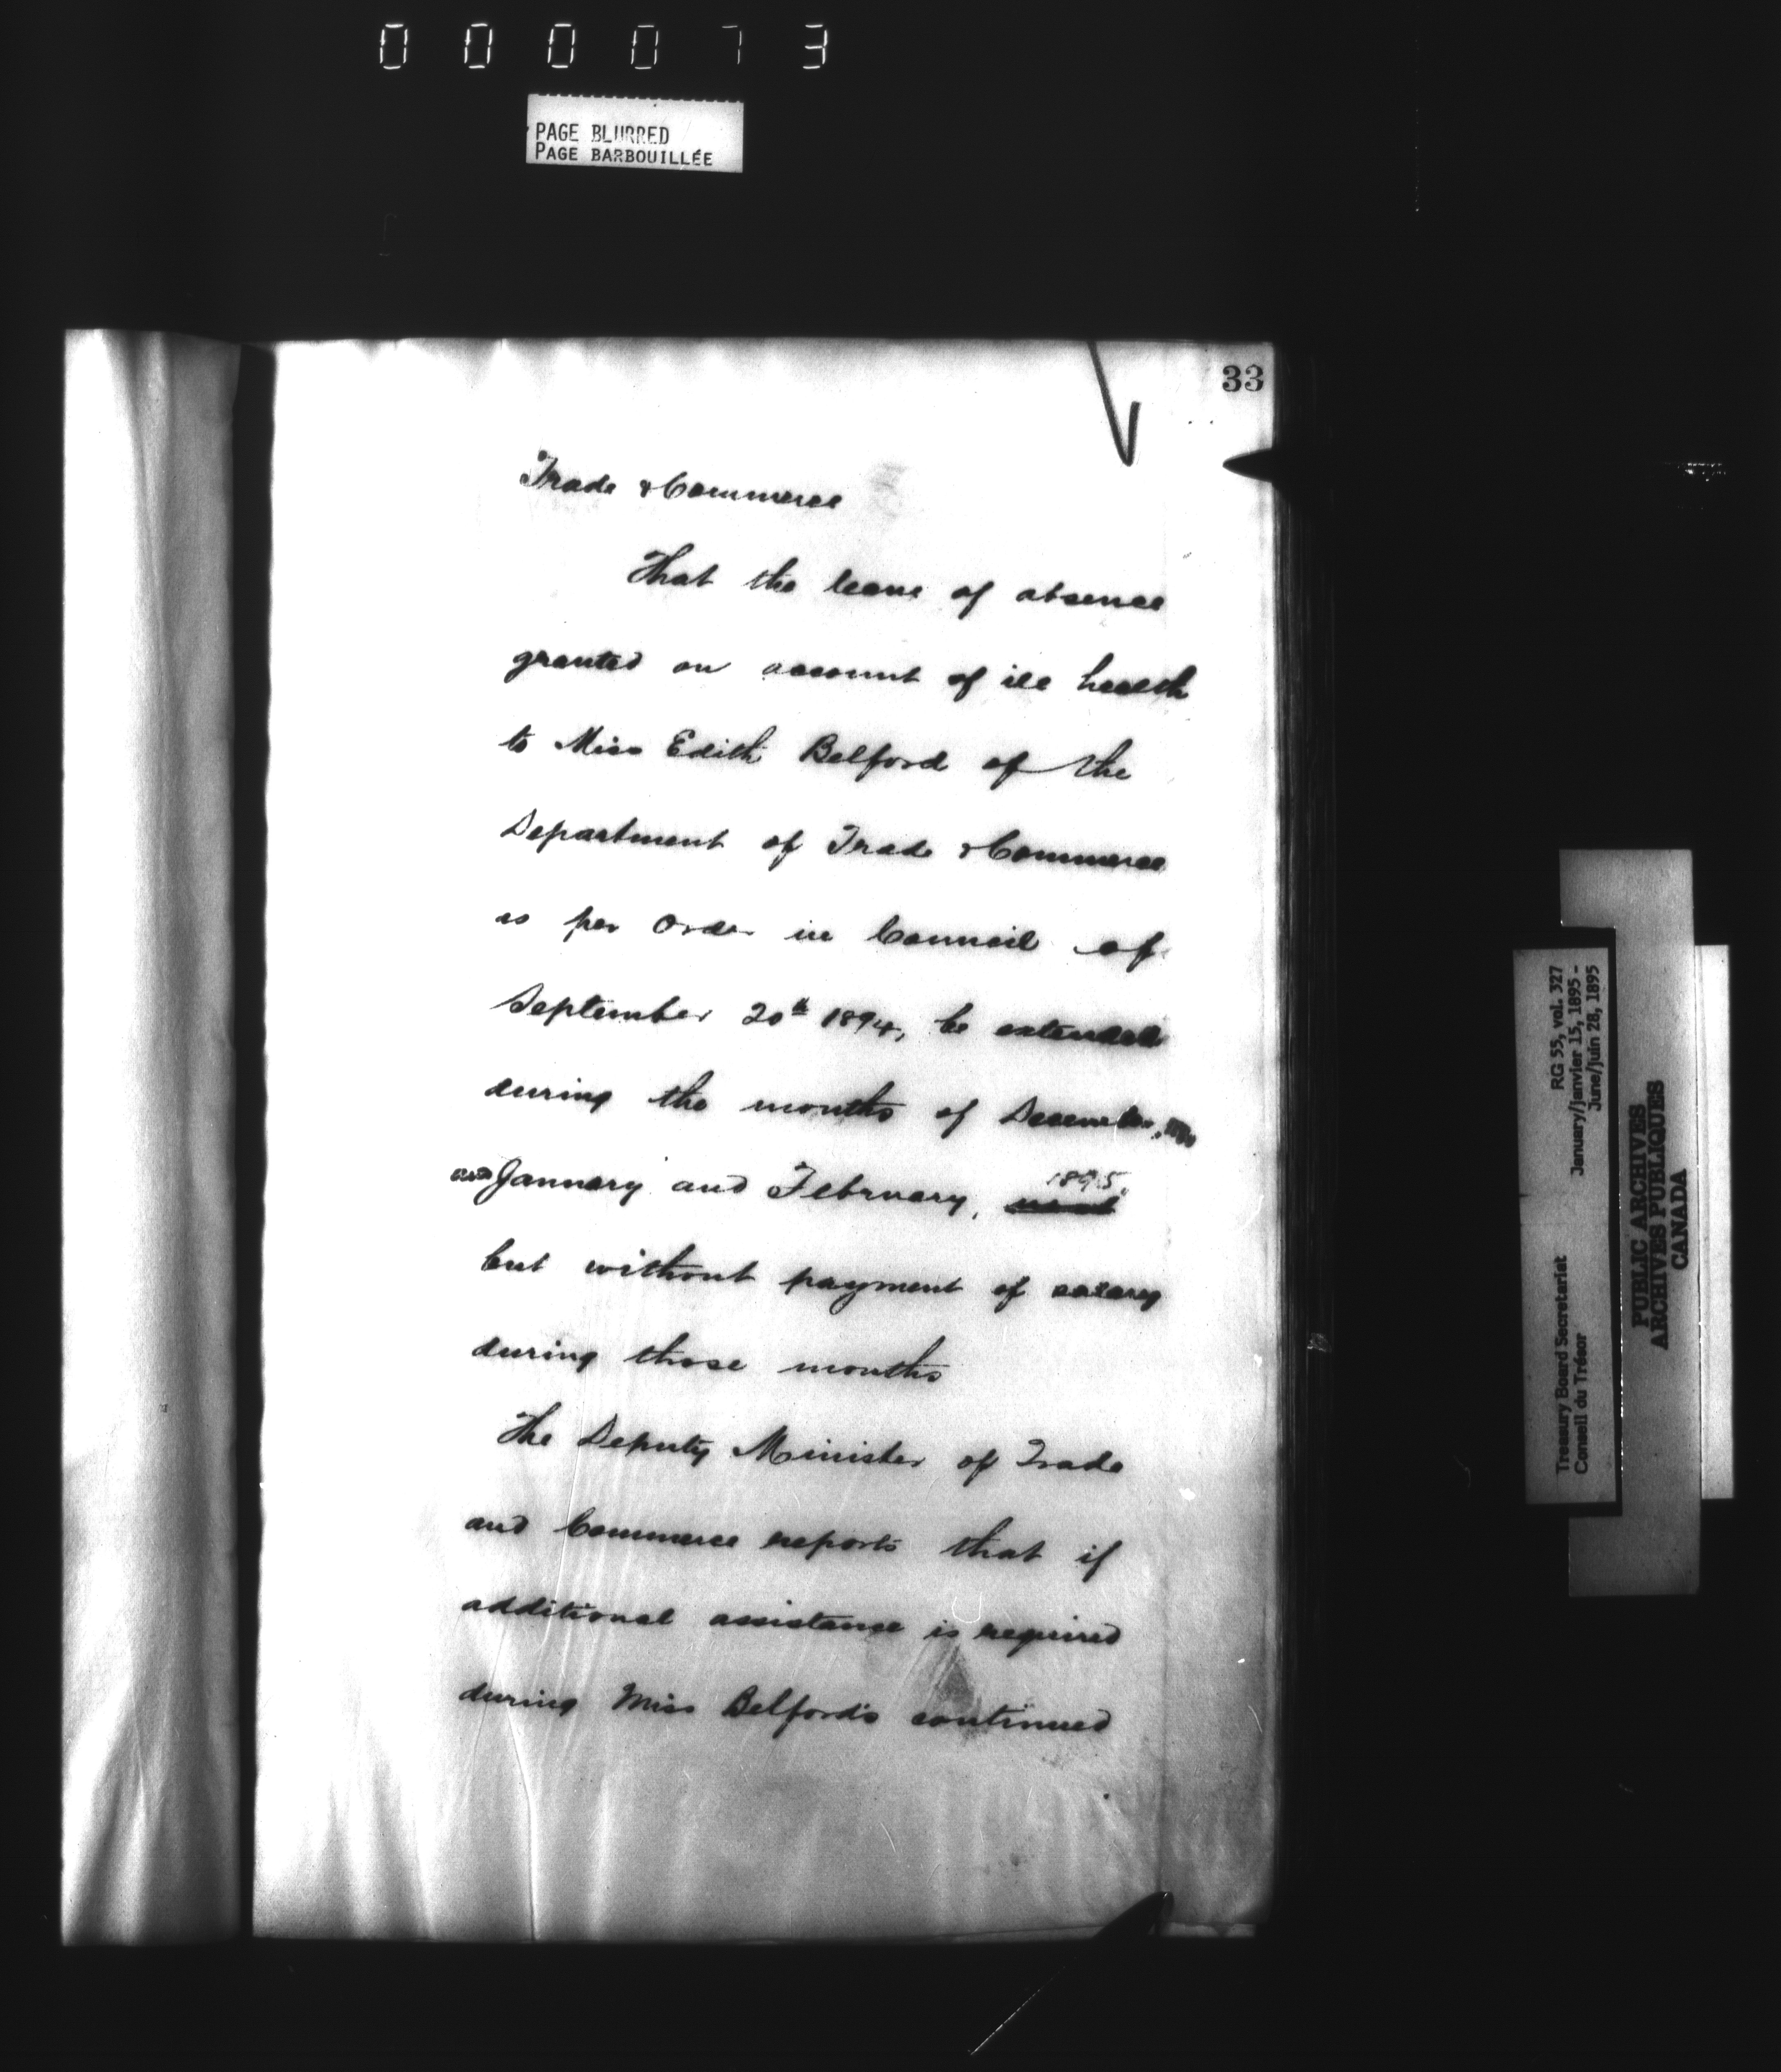 000073
PAGE BLURRED
PAGE BARBOUILLÉE
33
Trade & Commerce
That the leave of absence
granted on account of ill health
to Miss Edith Belford of the
Department of Trade & Commerce
as per Order in Council of
September 20th 1894, be extended
during the months of December,
and January and February, 1895.
but without payment of salary
during those months
The Deputy Minister of Trade
and Commerce reports that if
additional assistance is required
during Miss Belford's continued
Treasury Board Secretariat RG 55, vol. 327
Conseil du Trésor January/janvier 15, 1895 -
June/juin 28, 1895
PUBLIC ARCHIVES
ARCHIVES PUBLIQUES
CANADA